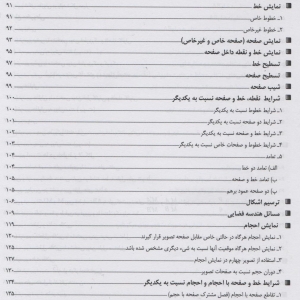 نمایش خط ۹۱
۱ـ خطوط خاص ۹۱
۲ـ خطوط غیرخاص ۹۲
نمایش صفحه (صفحه خاص و غیرخاص) ۹۳
نمایش خط و نقطه داخل صفحه ۹۵
تسطیح خط ۹۷
تسطیح صفحه ۹۸
شیب صفحه ۹۹
شرایط نقطه، خط و صفحه نسبت به یکدیگر ۱۰۰
۱ـ شرایط خطوط نسبت به یکدیگر ۱۰۰
۲ـ شرایط دو صفحه نسبت به یکدیگر ۱۰۱
۳ـ شرایط خط و صفحه نسبت به یکدیگر ۱۰۲
۴ـ شرایط خطوط و صفحات خاص نسبت به یکدیگر ۱۰۳
۵ـ تعامد ۱۰۴
الف) تعامد دو خط ۱۰۴
ب) تعامد خط و صفحه
پ) دو صفحه عمود برهم
ترسیم اشکال ۱۰۶
مسائل هندسه فضایی ۱۰۹
نمایش احجام ۱۱۹
۱ـ نمایش احجام هرگاه در حالتی خاص مقابل صفحه تصویر قرار گیرند
۲ـ نمایش احجام هرگاه موقعیت آنها نسبت به شیء دیگری مشخص شده باشد
۳ـ استفاده از تصویر چهارم در نمایش احجام
۴ـ دوران حجم نسبت به صفحات تصویر
شرایط خط و صفحه با احجام و احجام نسبت به یکدیگر
۱ـ تقاطع صفحه با احجام (فصل مشترک صفحه با حجم) ۱۳۵